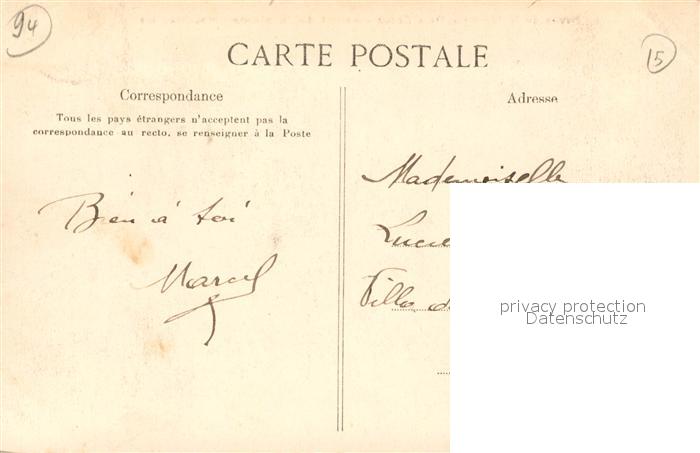 94
CARTE POSTALE
15
Correspondance
Tous les pays étrangers n'acceptent pas la
correspondance au recto, se renseigner à la Poste
Adresse
Bien à toi
Marcel
Mademoiselle
Villa
privacy protection
Datenschutz